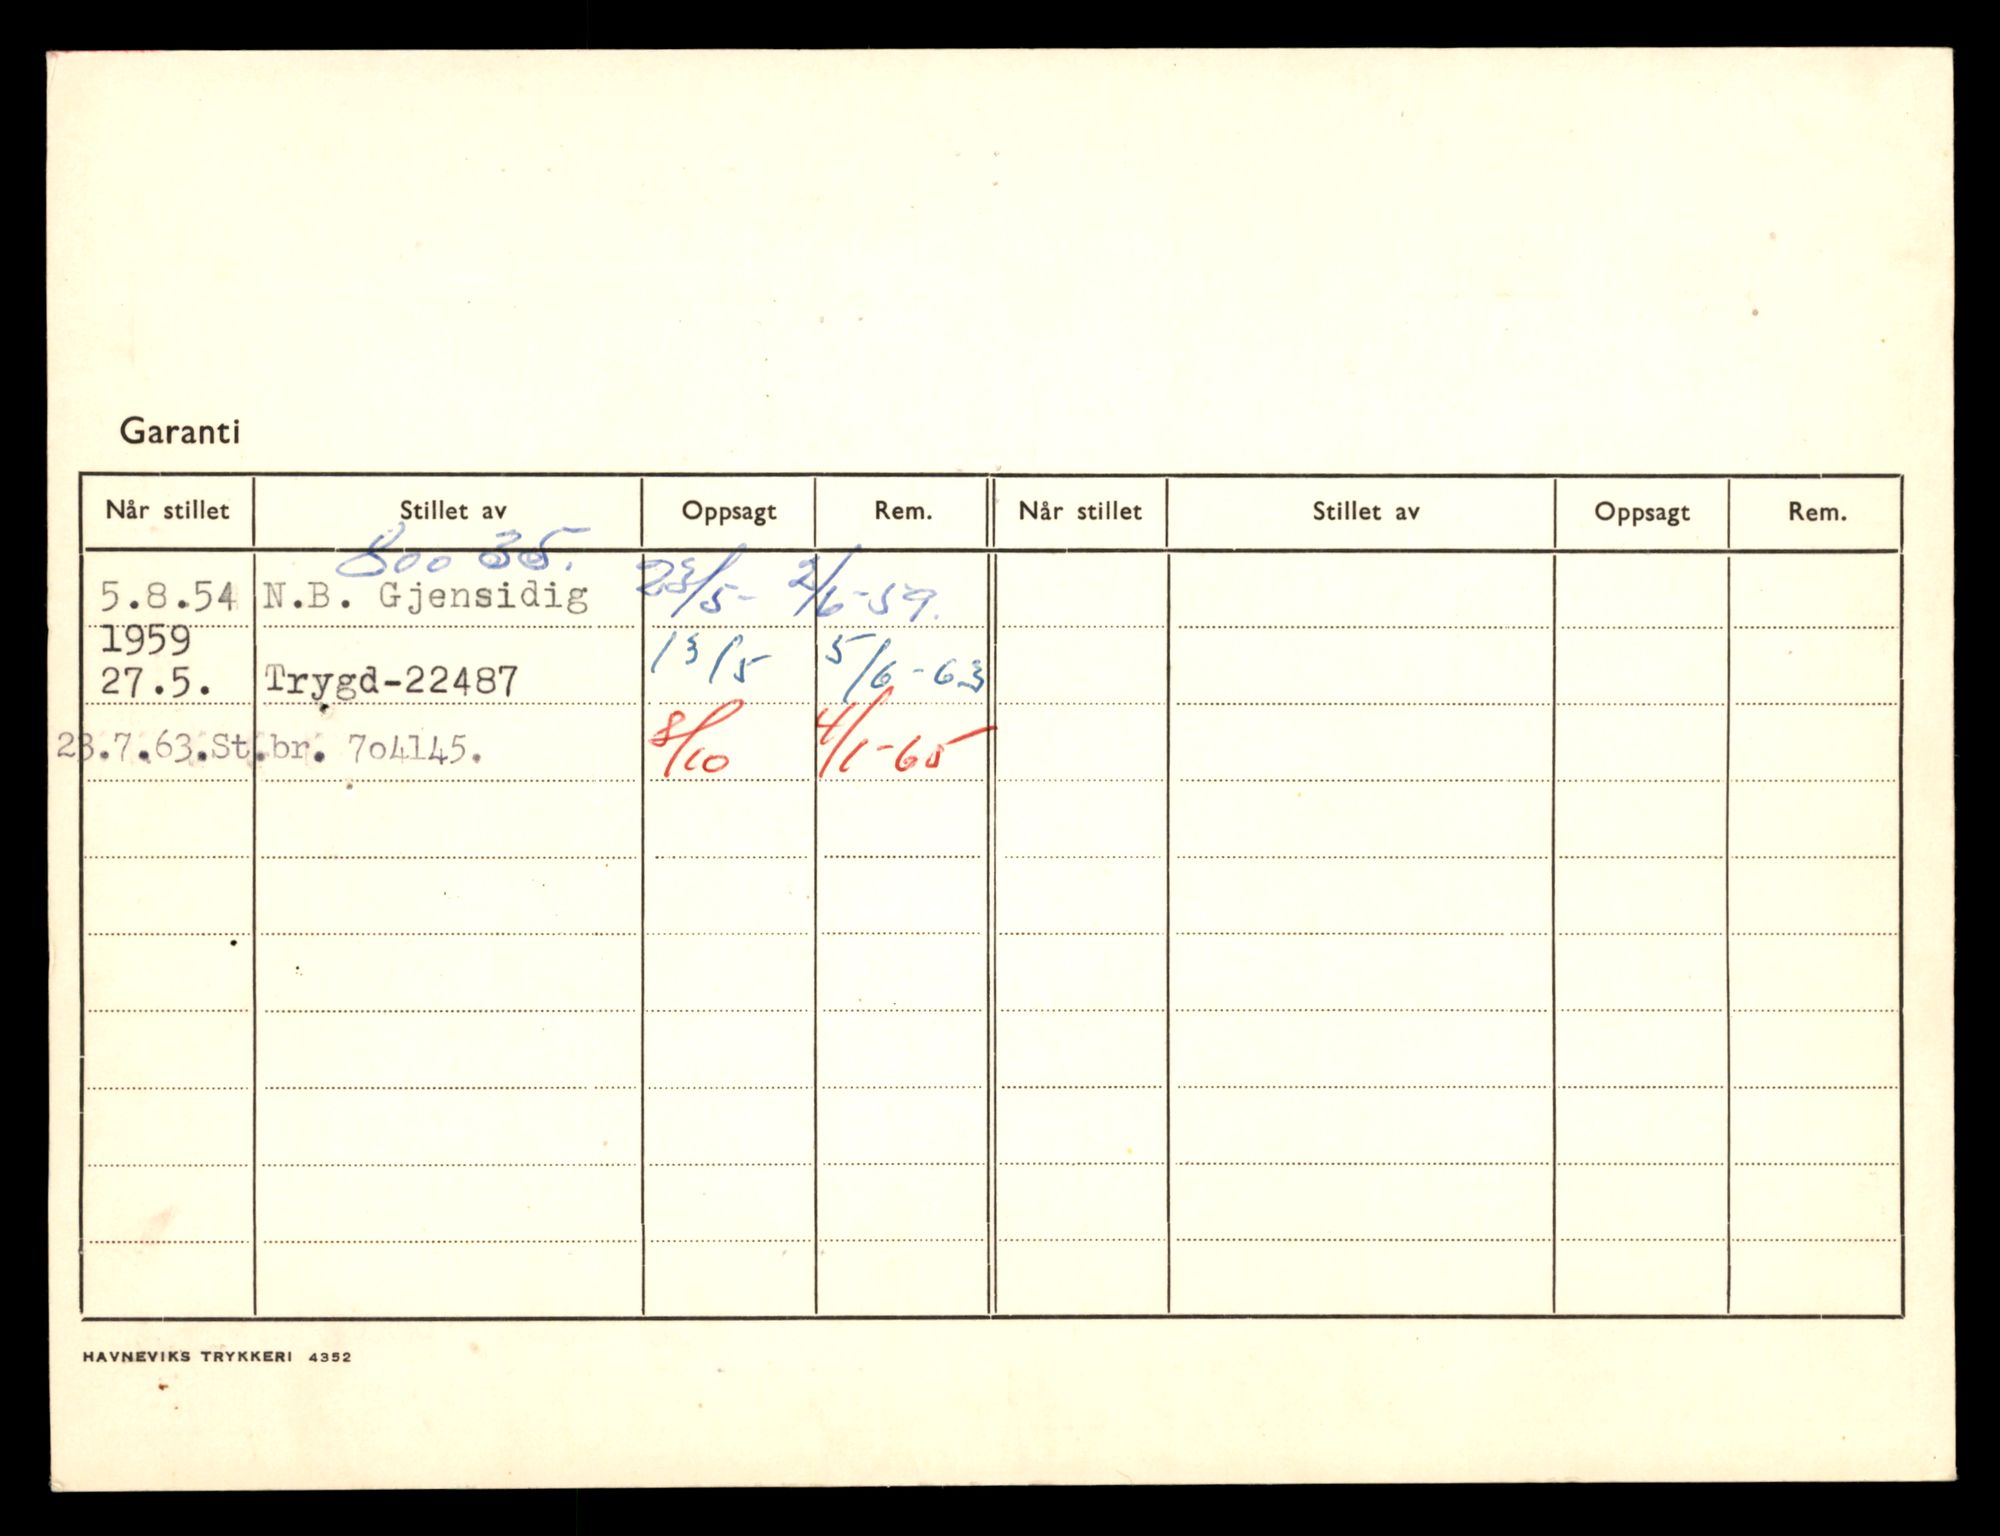 Garanti
Når stillet Stillet av Oppsagt Rem. Når stillet Stillet av Oppsagt Rem.
80035.
5.8.54 N.B. Gjensidig 23/5- 2/6-59.
1959
27.5. Trygd-22487 13/5 5/6-63
23.7.63.St.br. 7o4145. 8/10 4/1-65
HAVNEVIKS TRYKKERI 4352